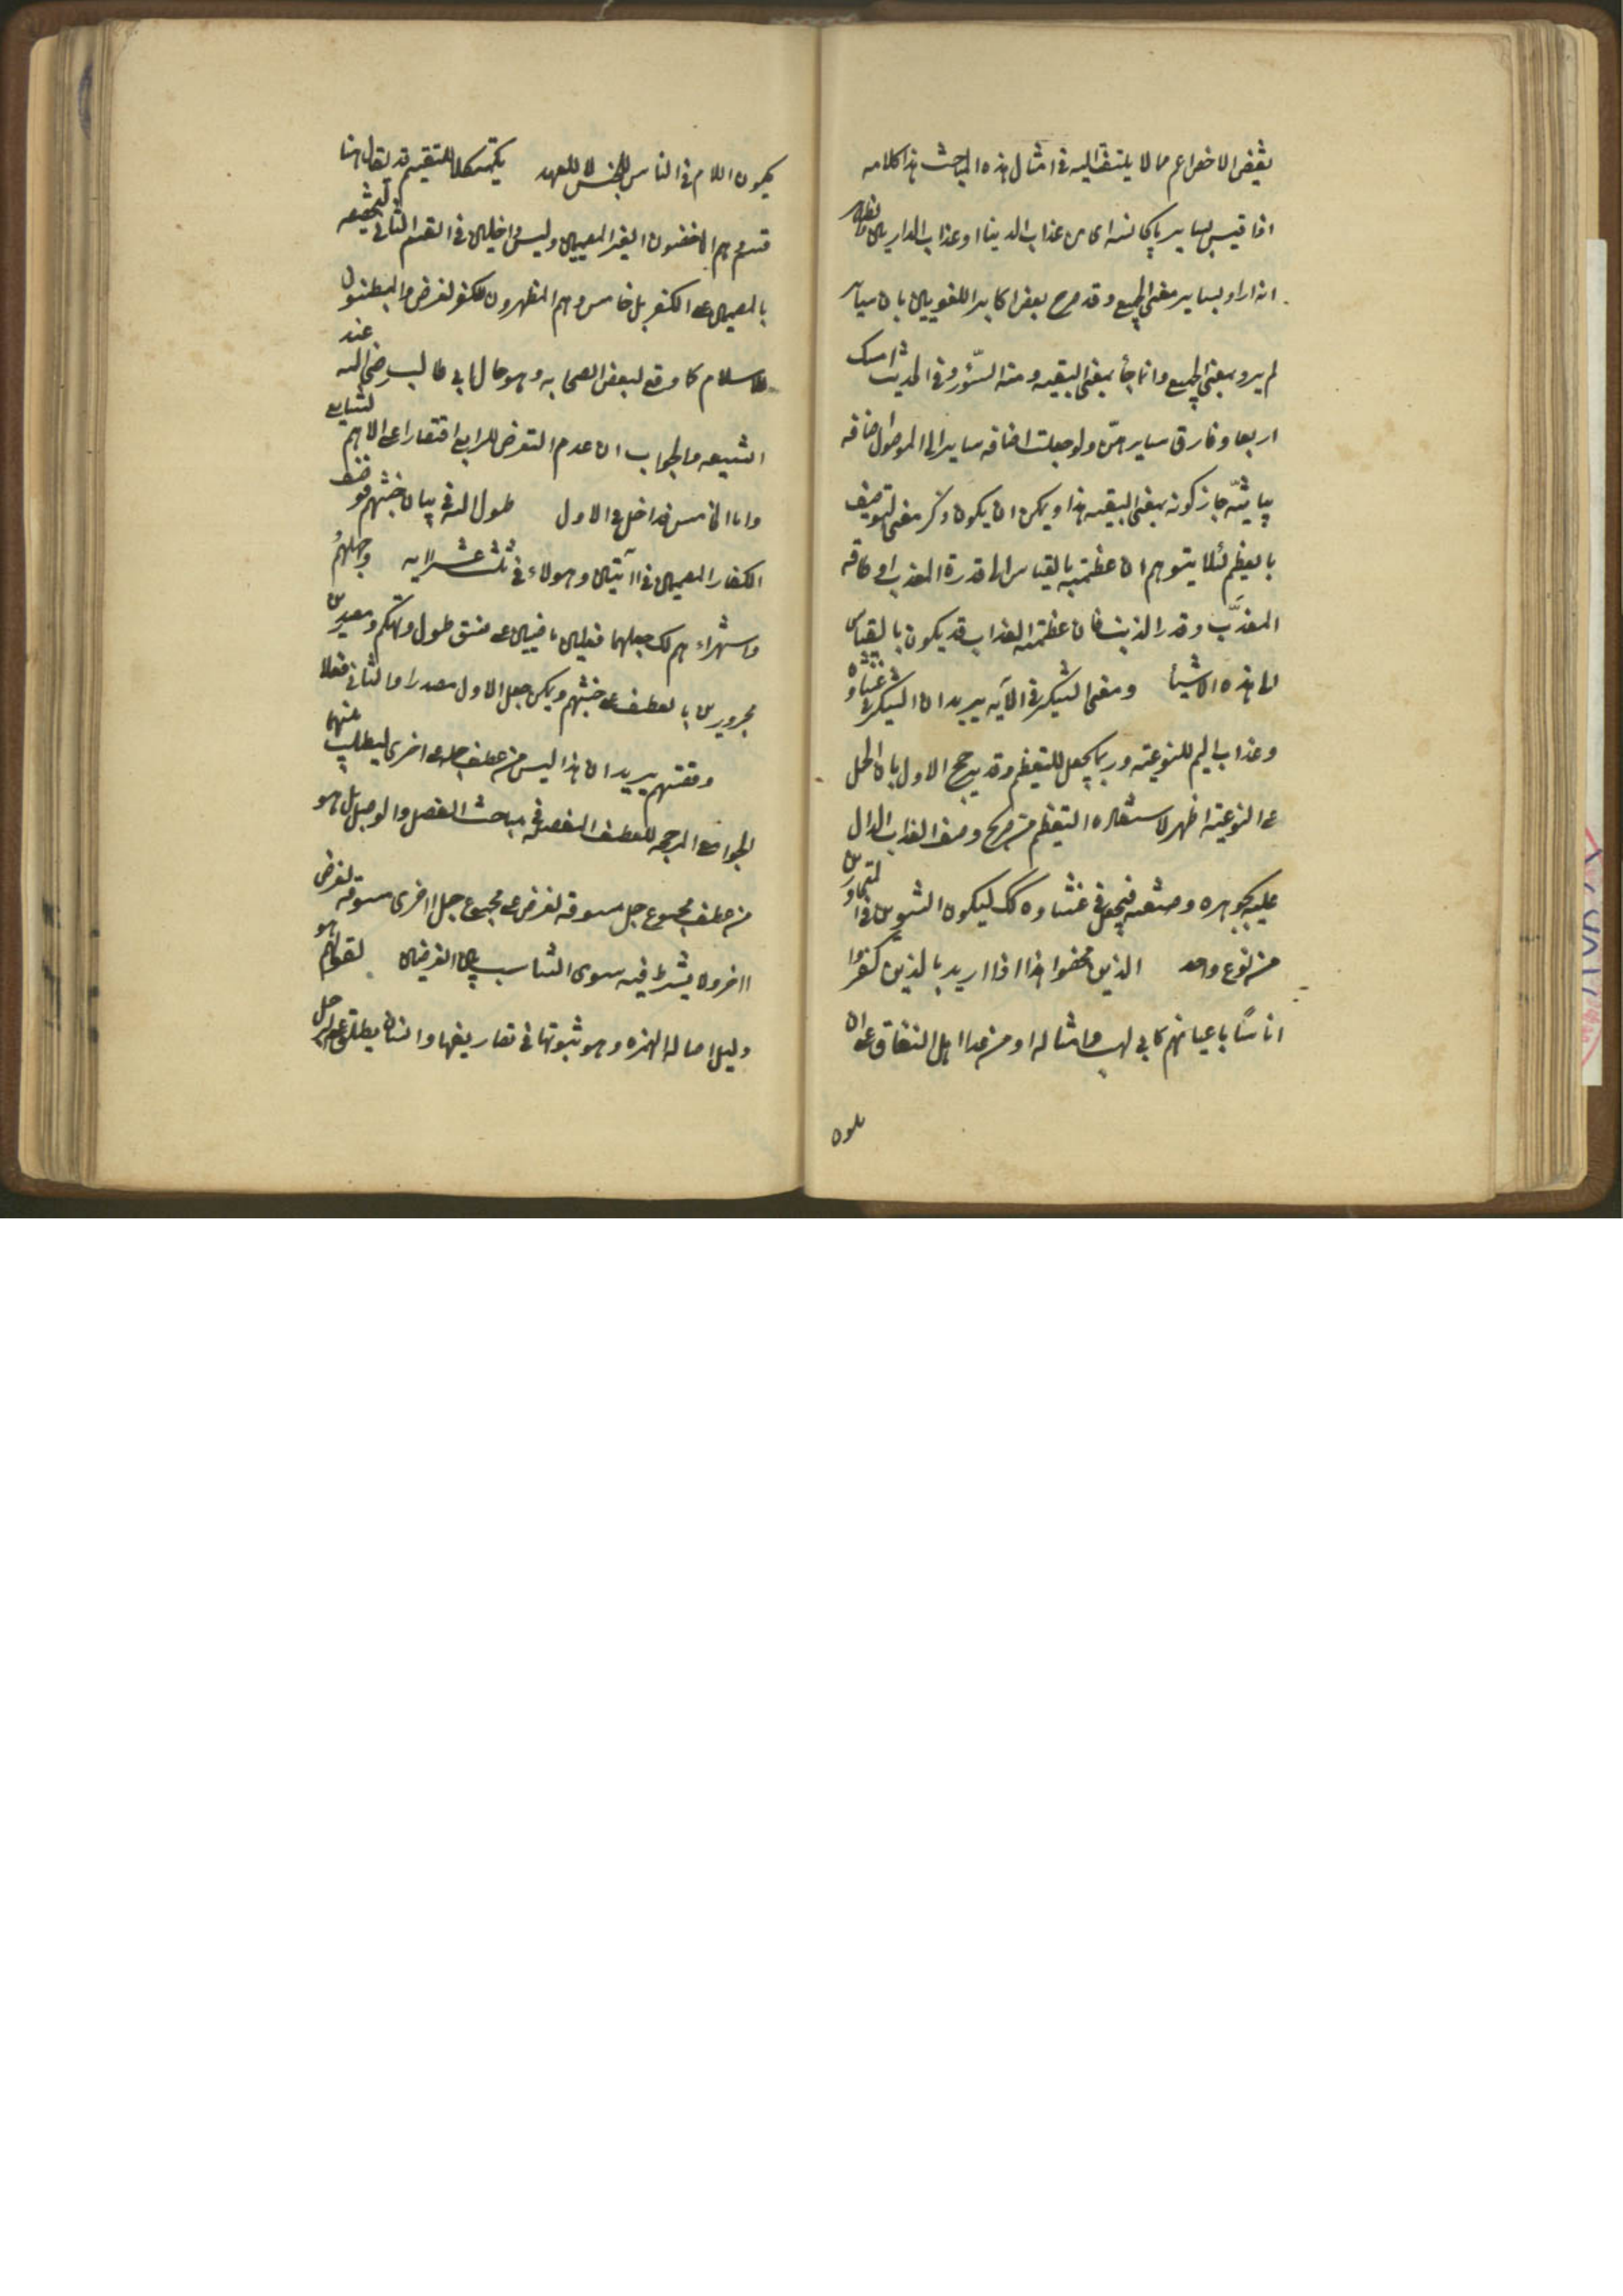 بنقيض الاخص اعم مما لا يلتفت اليه في امثال هذه المباحث هذا كلامه
اذا قيس بساير ما يجانسه اى من عذاب الدنيا او عذاب الدارين والظاهر
انه اراد بساير معنى الجميع وقد صرح بعض اكابر اللغويين بان ساير
لم يرد بمعنى الجميع وانما جاء بمعنى البقيه ومنه السؤر وفي الحديث امسك
اربعا وفارق سايرهن ولو جعلت اضافه ساير الى الموصول اضافه
بيانيّه جاز كونه بمعنى البقيه هذا ويمكن ان يكون ذكر معنى التوصيف
بالعظيم لئلا يتوهم ان عظمته بالقياس الى قدرة المعذب او طاقه
المعذَّب وقدر الذنب فان عظمه العذاب قد يكون بالقياس
الى هذه الاشيا ومعنى التنكير في الآيه يريد ان التنكير في غشاوه
وعذاب اليم للنوعيته وربما يجعل للتعظيم وقد يرجح الاول بان الحمل
على النوعيته اظهر لاستفاده التعظيم من صريح وصف العذاب الدال
عليه بجوهره وصيغته فيجعل في غشاوه كك ليكون التنوين في المتجاورين
من نوع واحد الذين محضوا هذا اذا اريد بالذين كفروا
اناسًا باعيانهم كابي لهب وامثاله او من عدا اهل النفاق على ان
يكون اللام في الناس للجنس لا للعهد تكميلا للتقسيم قد يقال هنا
قسم وهم الاخفون الغير المصرين وليس داخلين في القسم الثاني لتخصيصه
بالمصرين على الكفر بل خامس وهم المظهرون للكفر لغرض والمبطنون
للاسلام كما وقع لبعض الصحابه وهو حال ابي طالب رضي الله عند
الشيعه والجواب ان عدم التعرض للرابع اقتصارا على الاهم
واما الخامس فداخل في الاول طول الله في بيان خبثهم
الكفار المصرين في آيتين وهولاء في ثلث عشر ايه وجهلهم
واستهزاء بهم لك جعلهما فعلين ماضيين على نسق طول وتهكم ومصدرين
مجرورين بالعطف على خبثهم ويمكن جعل الاول مصدرا والثاني فعلا
وقصتهم يريد ان هذا ليس من عطف جمله على اخرى ليطلب بينهما
الجوامع المرجحه للعطف المفصله في مباحث الفصل والوصل بل هو
من عطف مجموع جمل مسوقه لغرض على مجموع جمل اخرى مسوقه لغرض
اخر ولا يشترط فيه سوى التناسب بين الغرضين لقولهم هو
دليل اصاله الهمزه وهو ثبوتها في تصاريفها وانسان يطلق على الرجل